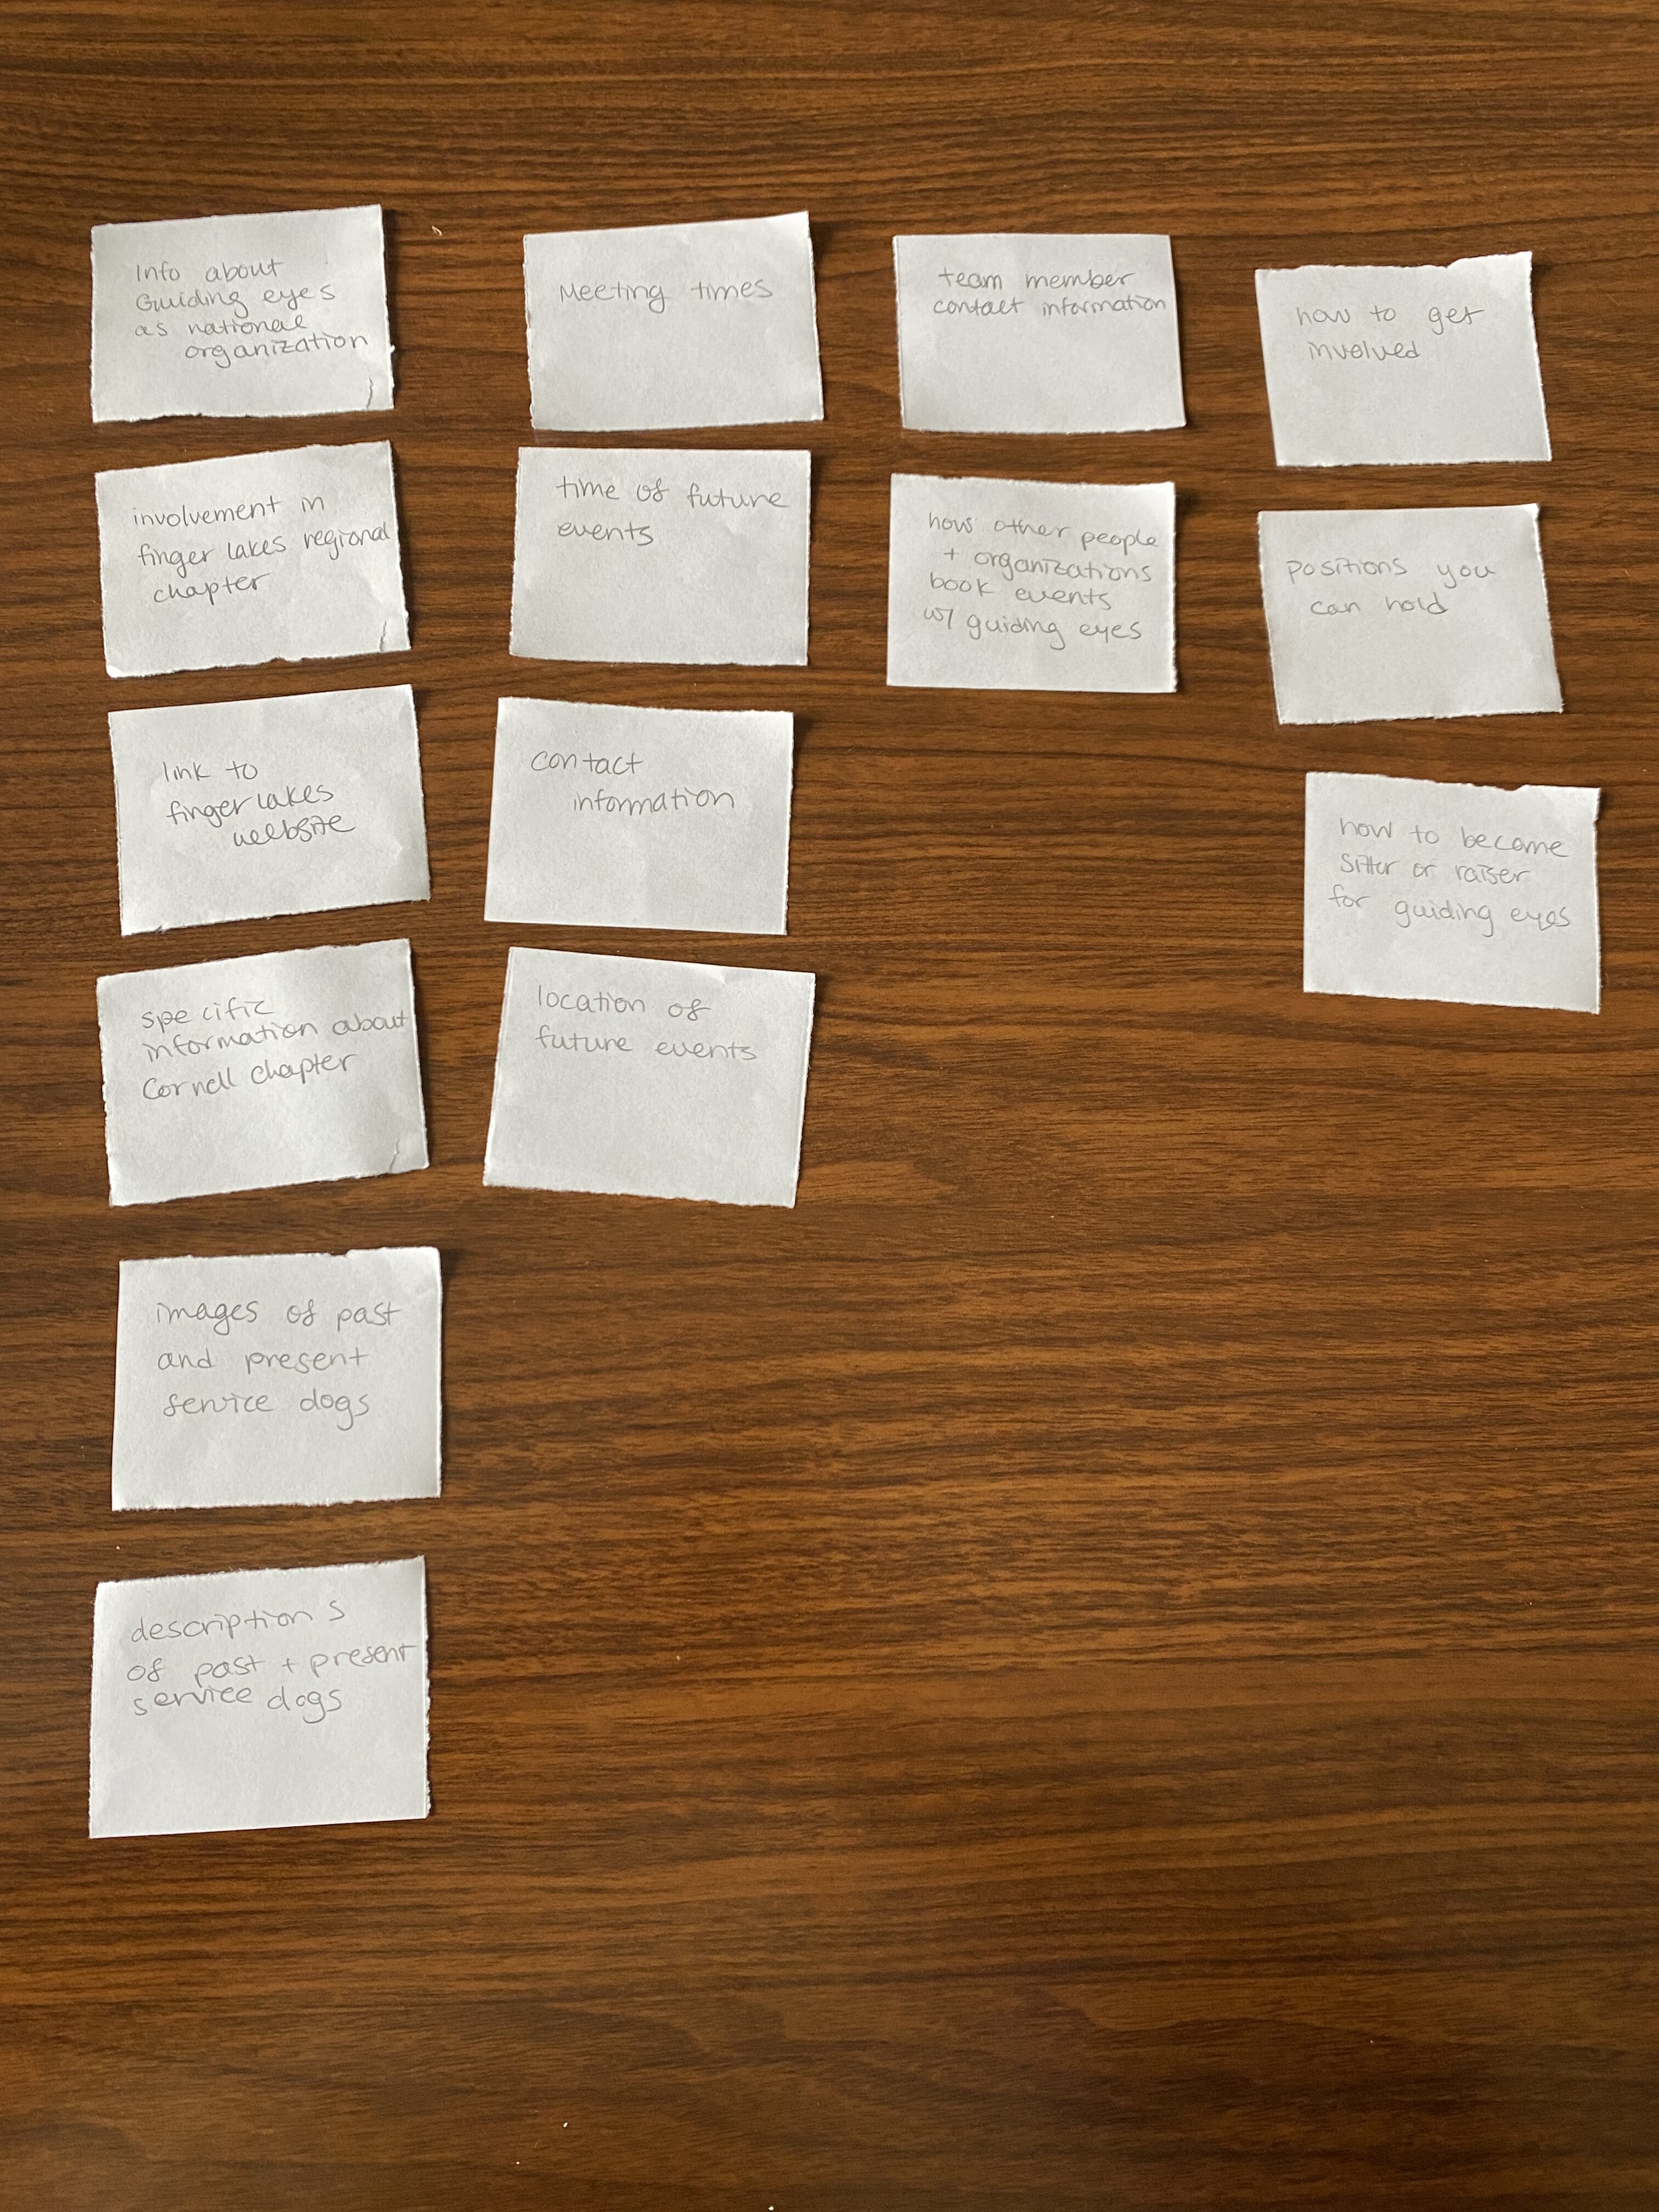 Info about
Guiding eyes
as national
organization
involvement in
finger lakes regional
chapter
link to
finger lakes
website
specific
information about
Cornell chapter
images of past
and present
service dogs
descriptions
of past + present
service dogs
Meeting times
time of future
events
contact
information
location of
future events
team member
contact information
how other people
+ organizations
book events
w/ guiding eyes
how to get
involved
positions you
can hold
how to become
sitter or raiser
for guiding eyes